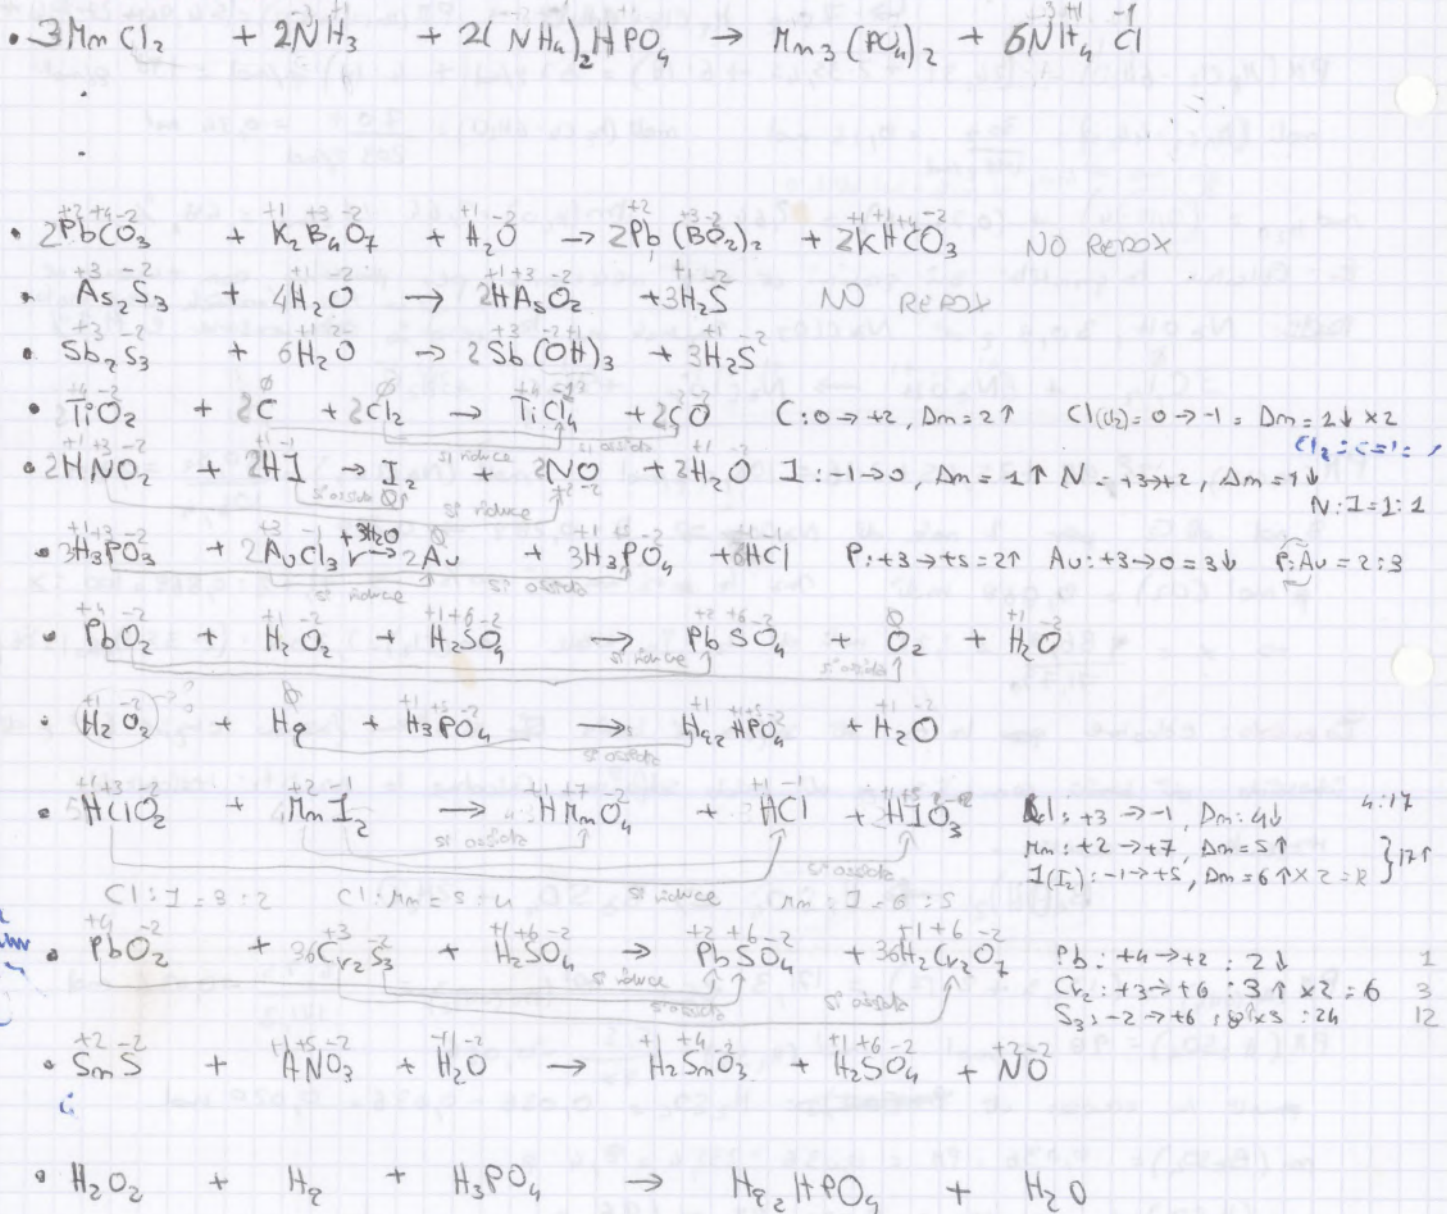 • 3MnCl2 + 2NH3 + 2(NH4)2HPO4 → Mn3(PO4)2 + 6NH4Cl
• 2PbCO3 + K2B4O7 + H2O → 2Pb(BO2)2 + 2KHCO3 NO REDOX
• As2S3 + 4H2O → 2HAsO2 + 3H2S NO REDOX
• Sb2S3 + 6H2O → 2Sb(OH)3 + 3H2S
• TiO2 + 2C + 2Cl2 → TiCl4 + 2CO C: 0 → +2, Δm = 2↑ Cl(Cl2) = 0 → -1 = Δm = 2↓ ×2
si riduce si ossida
• 2HNO2 + 2HI → I2 + 2NO + 2H2O I: -1 → 0, Δm = 1↑ N = +3→+2, Δm = 1↓
si ossida si riduce N:I = 1:1
• 3H3PO3 + 2AuCl3 + 3H2O → 2Au + 3H3PO4 + 6HCl P: +3 → +5 = 2↑ Au: +3 → 0 = 3↓ P:Au = 2:3
si riduce si ossida
• PbO2 + H2O2 + H2SO4 → PbSO4 + O2 + H2O
si riduce si ossida
• H2O2 + Hg + H3PO4 → Hg2HPO4 + H2O
si ossida
• 5HClO2 + 4MnI2 → HMnO4 + HCl + HIO3 Cl: +3 → -1, Δm: 4↓ 4:17
si ossida Mn: +2 → +7, Δm = 5↑ } 17↑
si riduce si ossida I(I2): -1 → +5, Δm = 6↑ × 2 = 12
Cl:I = 3:2 Cl:Mn = 5:4 Mn:I = 6:5
• PbO2 + 36Cr2S3 + H2SO4 → PbSO4 + 36H2Cr2O7 Pb: +4 → +2 : 2↓ 1
si riduce Cr2: +3 → +6 : 3↑ ×2 = 6 3
si ossida si ossida S3: -2 → +6 : 8↑×3 : 24 12
• SmS + HNO3 + H2O → H2SmO3 + H2SO4 + NO
• H2O2 + Hg + H3PO4 → Hg2HPO4 + H2O